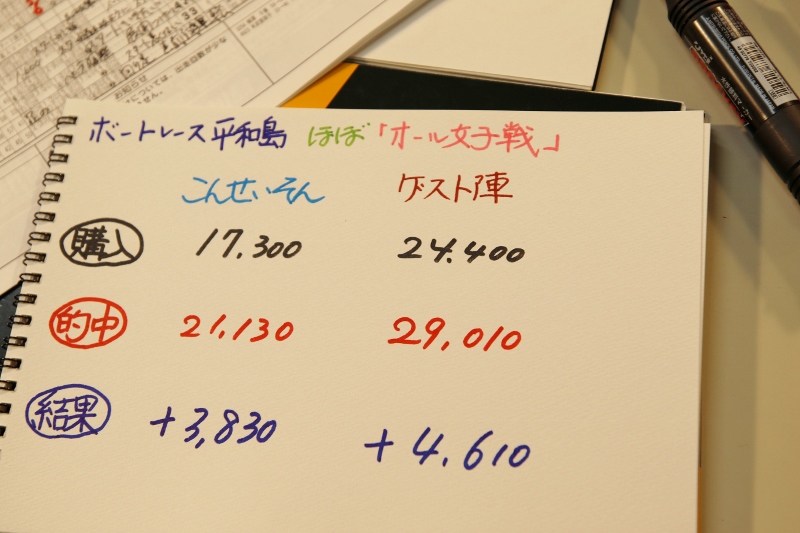 ボートレース平和島 ほぼ「オール女子戦」
こんせいそん ゲスト陣
購入 17.300 24.400
的中 21.130 29,010
結果 +3,830 +4.610